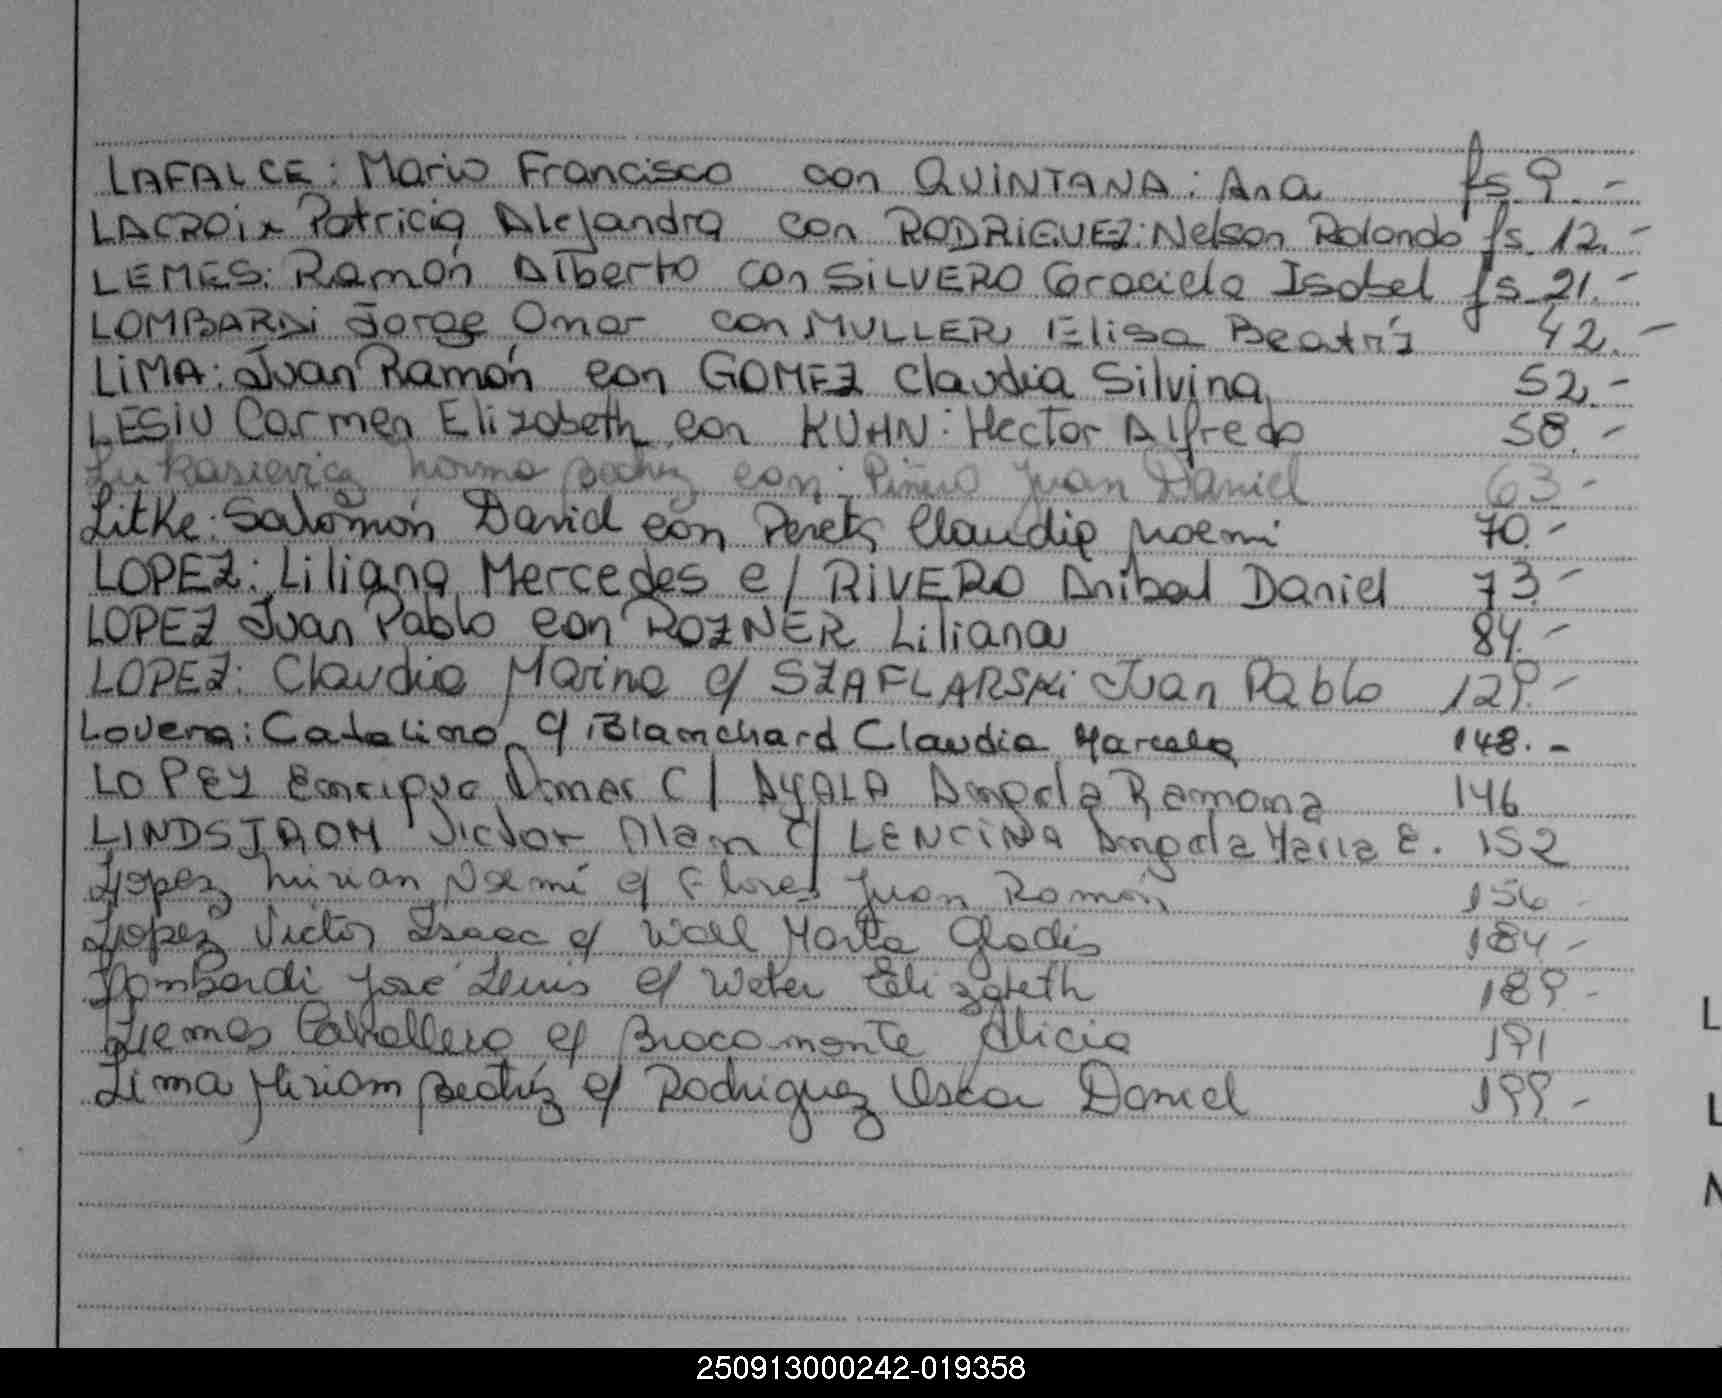 LAFALCE: Mario Francisco con QUINTANA: Ana fs. 9.-
LACROIX Patricia Alejandra con RODRIGUEZ: Nelson Rolando fs. 12.-
LEMES: Ramón Alberto con SILVERO Graciela Isabel fs. 21.-
LOMBARDI Jorge Omar con MULLER, Elisa Beatríz 42.-
LIMA: Juan Ramón con GOMEZ Claudia Silvina 52.-
LESIU Carmen Elizabeth con KUHN: Hector Alfredo 58.-
Lukasievicz Norma Beatriz con: Piñero Juan Daniel 63.-
Litke: Salomón David con Claudia Noemi 70.-
LOPEZ: Liliana Mercedes c/ RIVERO Anibal Daniel 73.-
LOPEZ Juan Pablo con ROZNER Liliana 84.-
LOPEZ: Claudia Marina c/ SZAFLARSKI Juan Pablo 129.-
Lovera: Catalino c/ Blanchard Claudia Marcela 148.-
LOPEZ Enrique Omar C/ AYALA Angela Ramona 146
LINDSTROM Victor Alan c/ LENCINA Angela Maria E. 152
Lopez Mirian Noemí c/ Flores Juan Ramón 156 -
Lopez Victor Isaac c/ Wall Marta Gladis 184 -
Lombardi José Luis c/ Weber Elizabeth 189 -
Lemes Caballero c/ Bracamonte Alicia 191
Lima Miriam Beatríz c/ Rodriguez Oscar Daniel 199 -
L
L
N
250913000242-019358